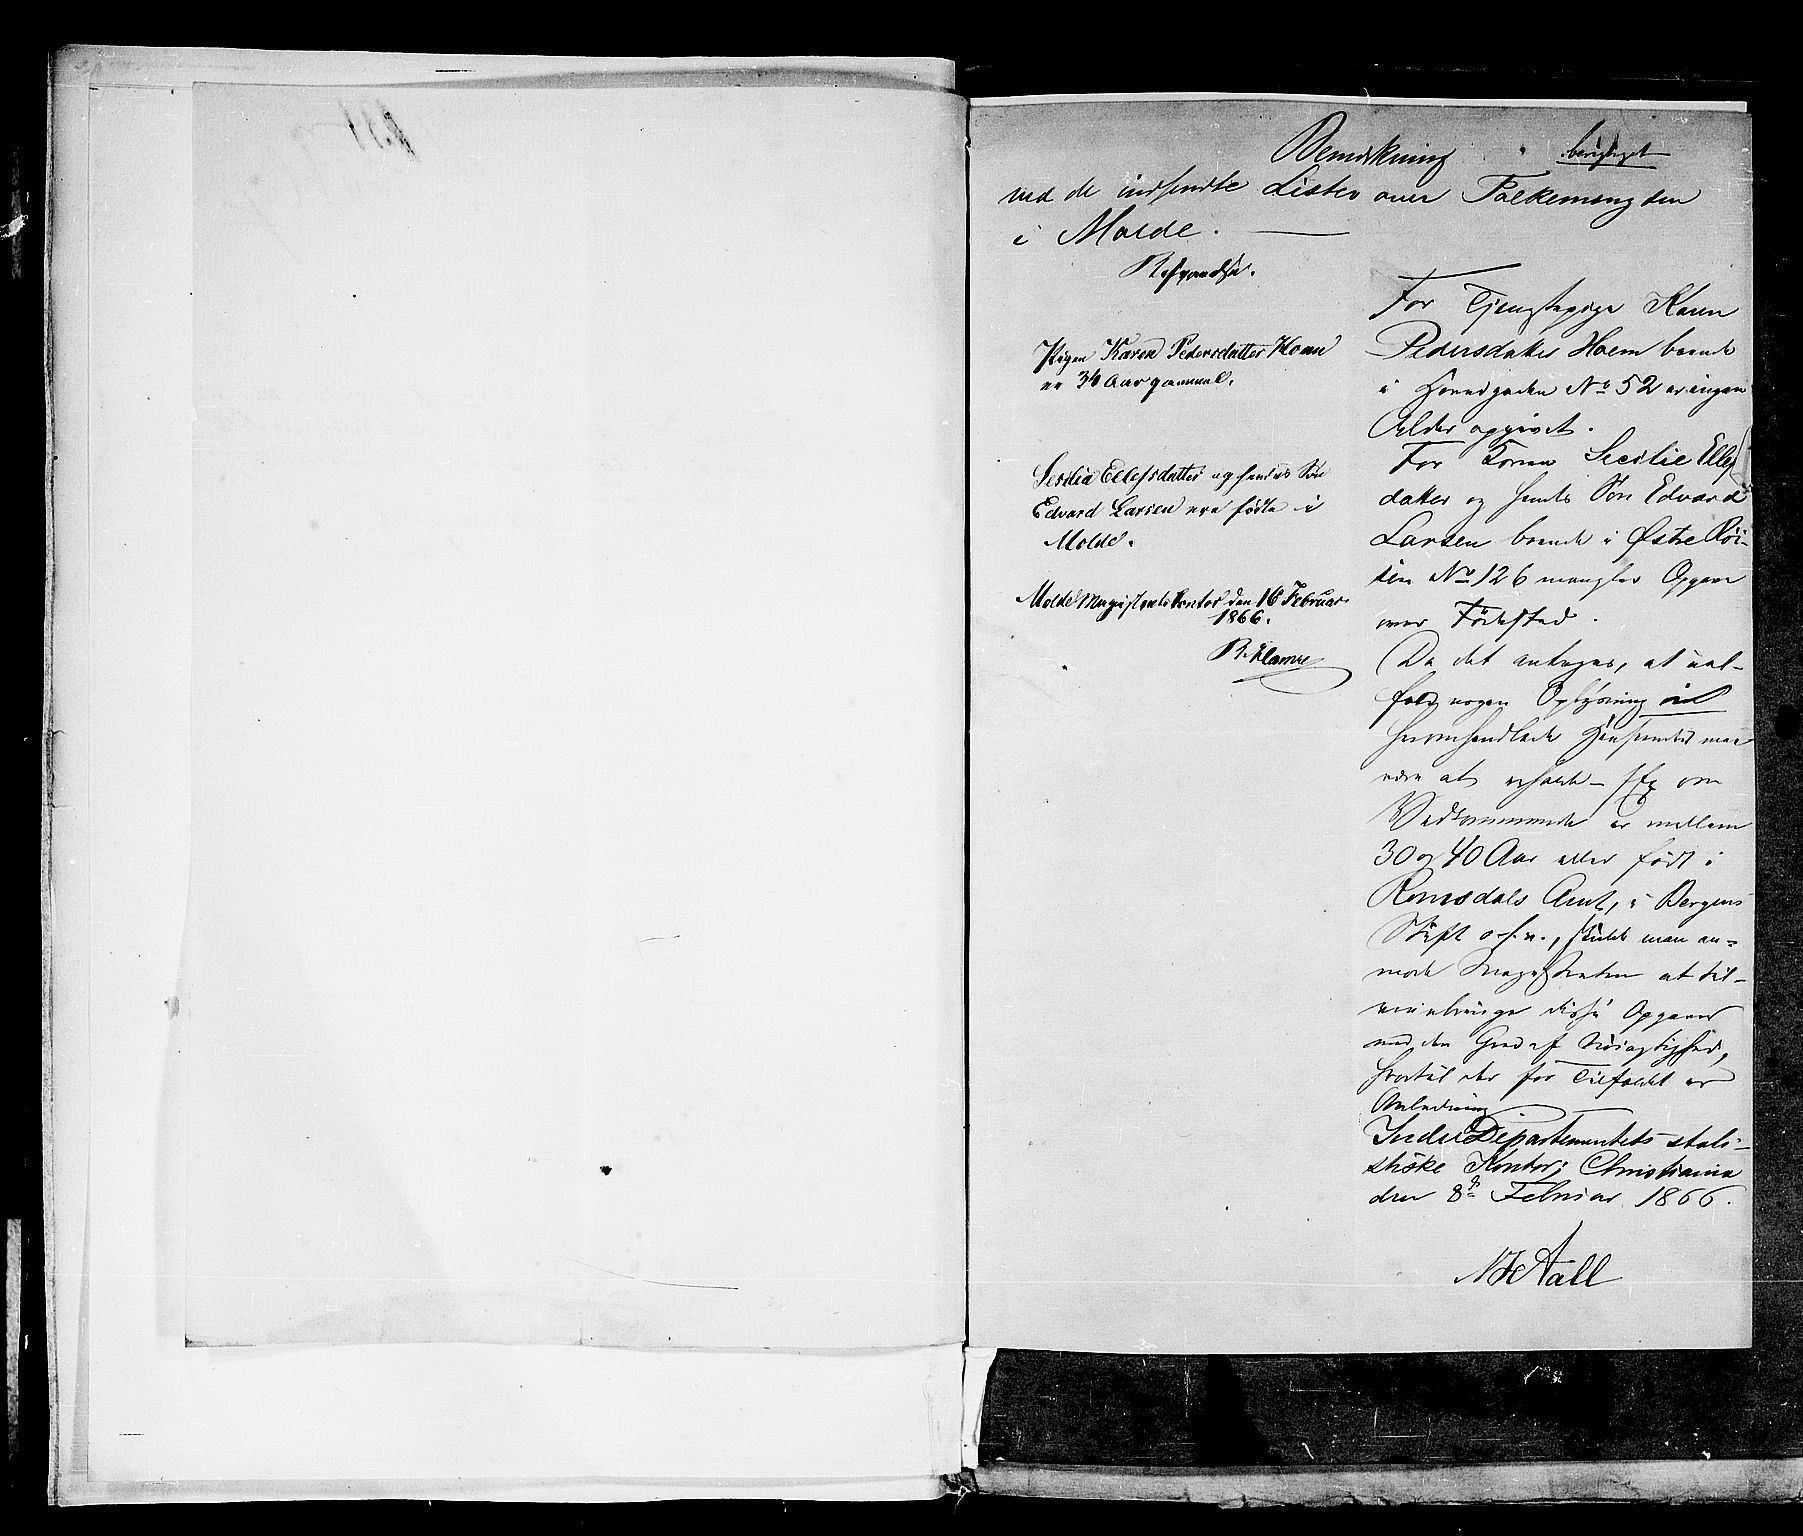 Bemærkning berigtiget
ved de indsendte Lister over Folkemængden
i Molde.
Besvarelse.
Pigen Karen Pedersdatter Hoem
er 34 Aar gammel.
Sesilia Ellefsdatter og hendes Søn
Edvard Larsen ere fødte i
Molde.
Molde Magistratskontor den 16 Februar
1866.
For Tjenestepige Karen
Pedersdatter Hoem boende
i Hovedgaden No 52 er ingen
Alder opgivet.
For Konen Secilie Ellefs
datter og hendes Søn Edvard
Larsen boende i Østre Røi-
sen No 126 mangler Opgave
over Fødested.
Da det antages, at ial-
fald nogen Oplysning i
heromhandlede Henseender maa
være at erholde – f Ex om
Vedkommende er mellem
30 og 40 Aar eller født i
Romsdals Amt, i Bergens
Stift o.s.v., skulde man an-
mode Magistraten at til-
veiebringe disse Opgaver
med den Grad af Nøiagtighed,
hvortil der for Tilfældet er
Anledning.
Indre Departementets stati-
stiske Kontor; Christiania
den 8de Februar 1866.
Aall